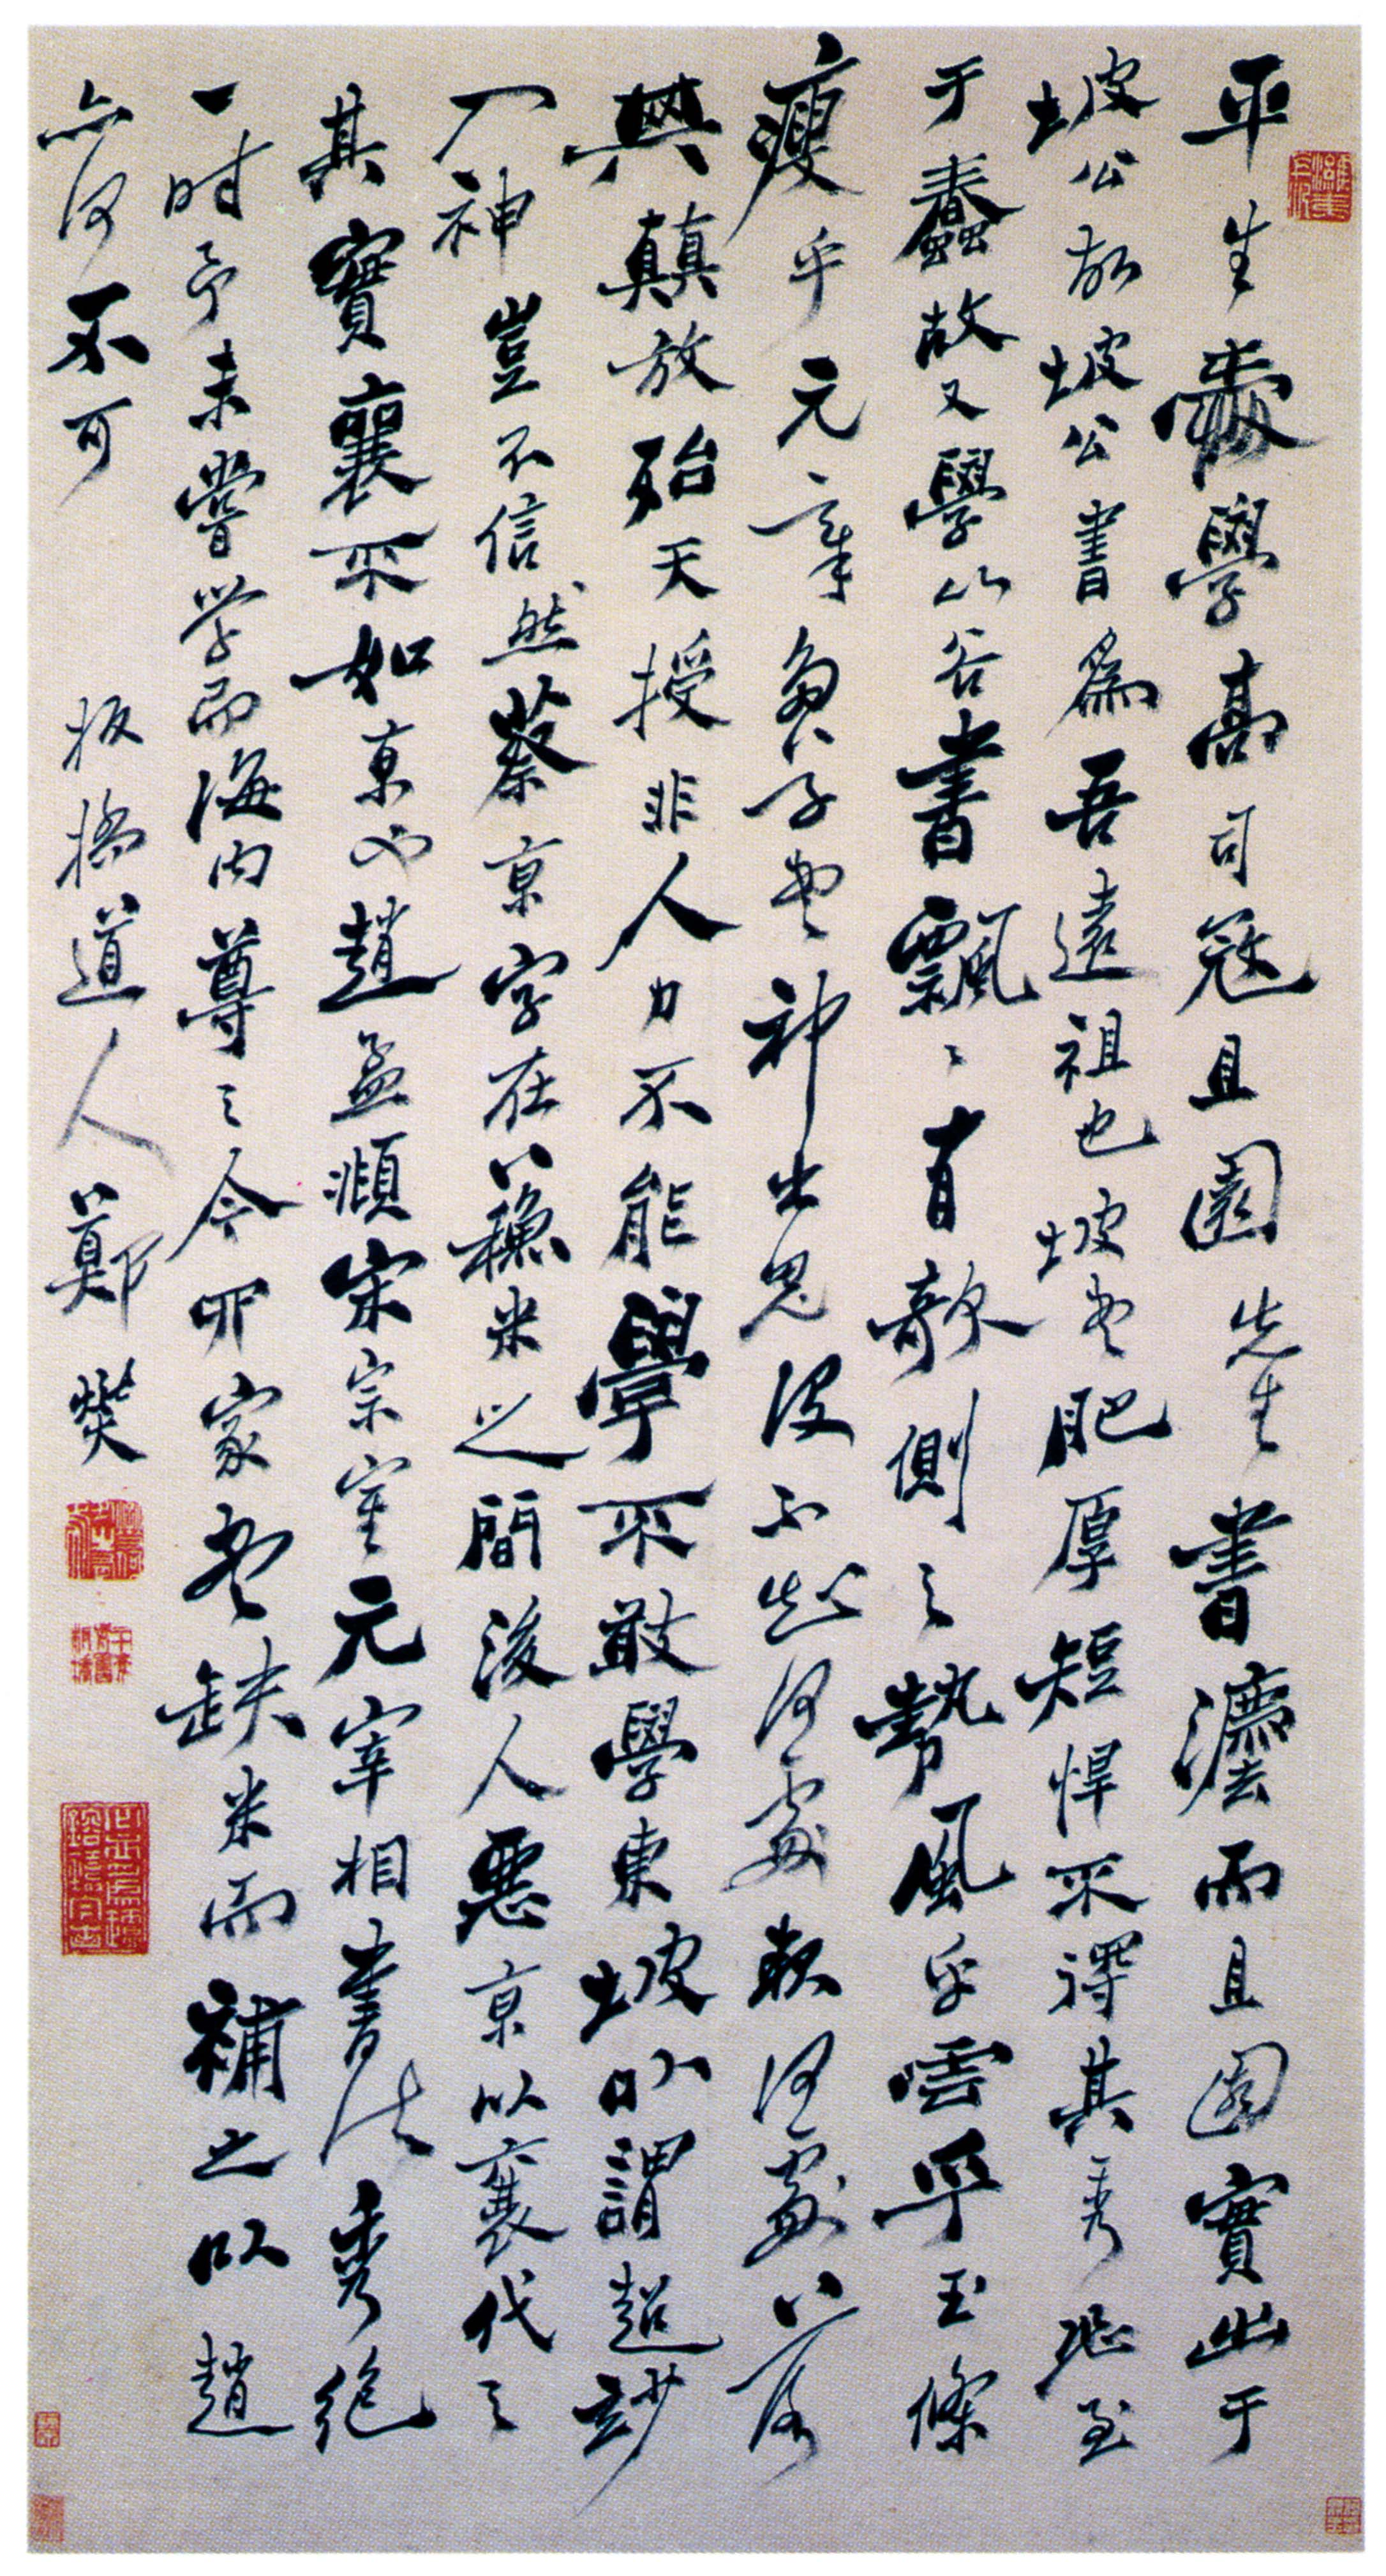 平生愛學高司寇且園先生書灋而且園實出于
坡公故坡公書爲吾遠祖也坡書肥厚短悍不得其秀恐至
于蠢故又學山谷書飄〻有欹側之勢風乎雲乎玉條
瘦乎元章書神出鬼没不知何處起何處落
興顛放殆天授非人力不能學不敢學東坡以謂超妙
入神豈不信然蔡京字在蘇米之間後人惡京以襄代之
其實襄不如京也趙孟頫宋宗室元宰相書法秀絶
一時予未嘗學而海內尊之今四家書缺米而補之以趙
亦何不可
板橋道人鄭燮